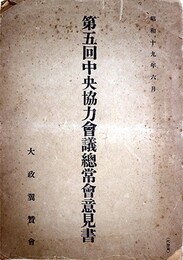 昭和十九年六月
第五回中央協力會議總常會意見書
大政翼賛會